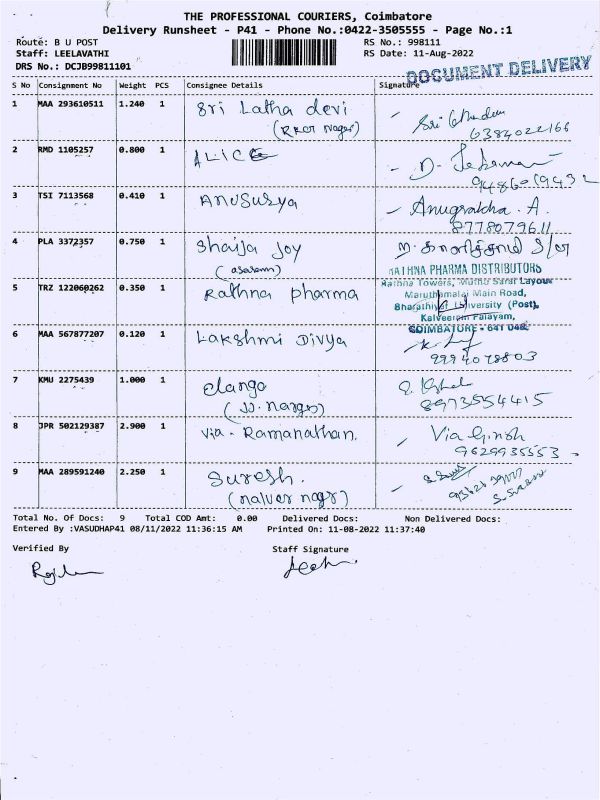 THE PROFESSIONAL COURIERS, Coimbatore
Delivery Runsheet - P41 - Phone No.:0422-3505555 - Page No.:1
Route: B U POST RS No.: 998111
Staff: LEELAVATHI RS Date: 11-Aug-2022
DRS No.: DCJB99811101
DOCUMENT DELIVERY
S No Consignment No Weight PCS Consignee Details Signature
1 MAA 293610511 1.240 1 Sri Latha devi
6384022166
2 RMD 1105257 0.800 1 ALICE
3 TSI 7113568 0.410 1 Anusuya Anugraldha. A.
8778079611
4 PLA 3372357 0.750 1 Shaija Joy
(asaram)
RATHNA PHARMA DISTRIBUTORS
5 TRZ 122060262 0.350 1 Rathna pharma
Rathna Towers, Muthu Saral Layout
Maruthamalai Main Road,
Bharathiyar University (Post),
Kalveeram Palayam,
COIMBATORE - 641 046
6 MAA 567877207 0.120 1 Lakshmi Divya
9994078803
7 KMU 2275439 1.000 1 elango
8973554415
8 JPR 502129387 2.900 1 Via - Ramanathan.
9629935553
9 MAA 289591240 2.250 1 Suresh.
Total No. Of Docs: 9 Total COD Amt: 0.00 Delivered Docs: Non Delivered Docs:
Entered By :VASUDHAP41 08/11/2022 11:36:15 AM Printed On: 11-08-2022 11:37:40
Verified By Staff Signature